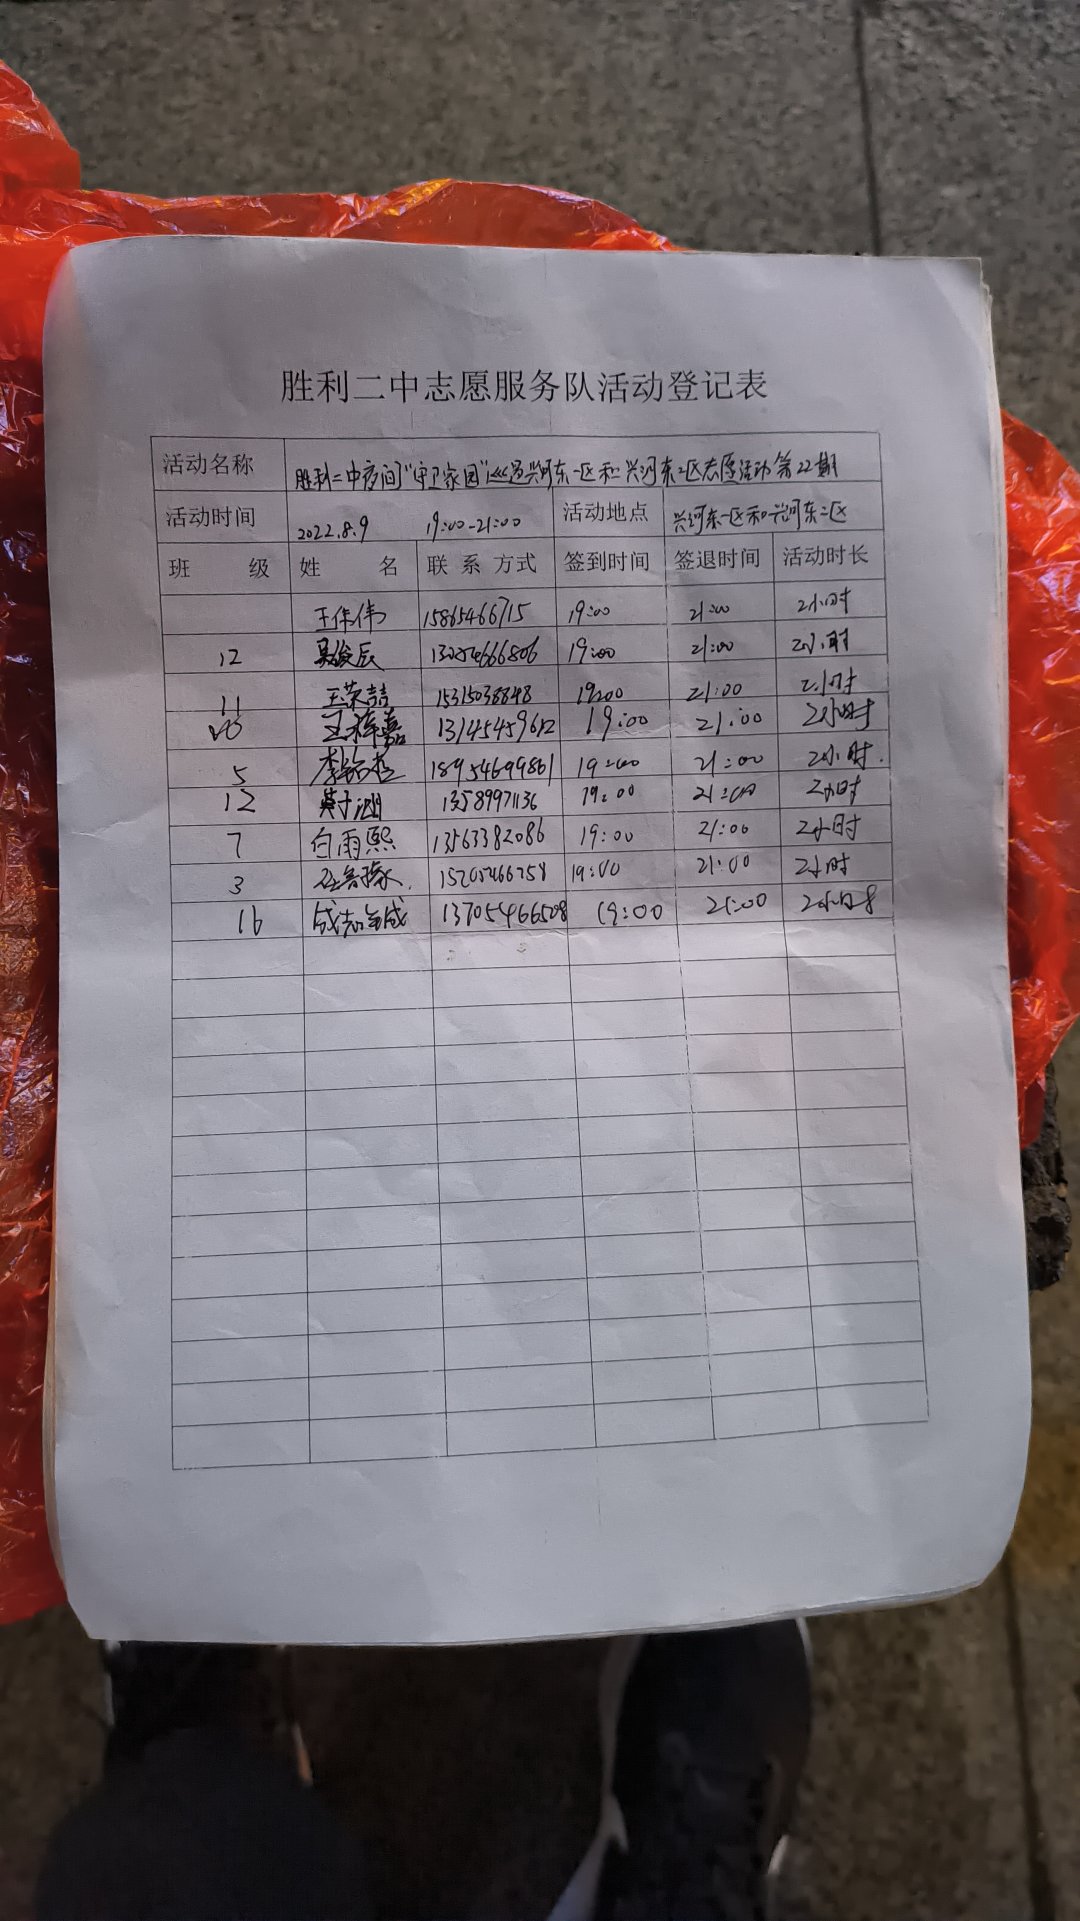 胜利二中志愿服务队活动登记表
活动名称 胜利二中夜间"守卫家园"巡逻兴河东一区和兴河东二区志愿活动第22期
活动时间 2022.8.9 19:00-21:00 活动地点 兴河东一区和兴河东二区
班 级 姓 名 联系方式 签到时间 签退时间 活动时长
王保伟 15865466715 19:00 21:00 2小时
12 吴俊辰 19:00 21:00 2小时
11 王荣喆 15315038848 19:00 21:00 2小时
王梓嘉 13145459612 19:00 21:00 2小时
5 李铭哲 18954699861 19:00 21:00 2小时.
12 13589971136 19:00 21:00 2小时
7 白雨熙 13563382086 19:00 21:00 2小时
3 15205466758 19:00 21:00 2小时
16 成志 13705466508 19:00 21:00 2小时